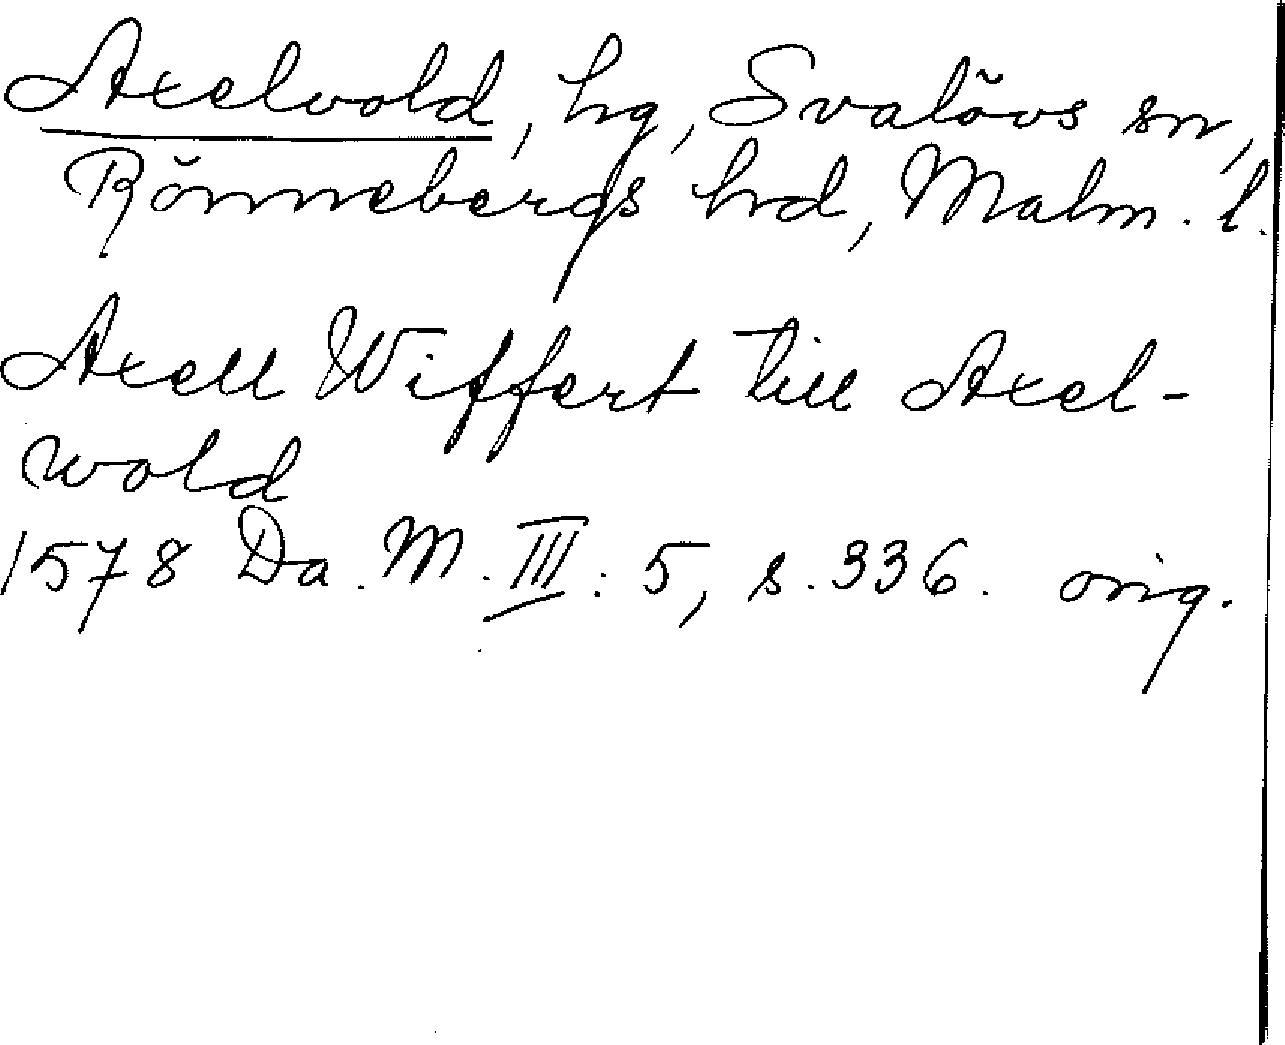 Axelvold, hg, Svalövs sn,
Rönnebergs hrd, Malm. l.
Axell Wiffert till Axel-
wold
1578 Da. M. III: 5, s. 336. orig.